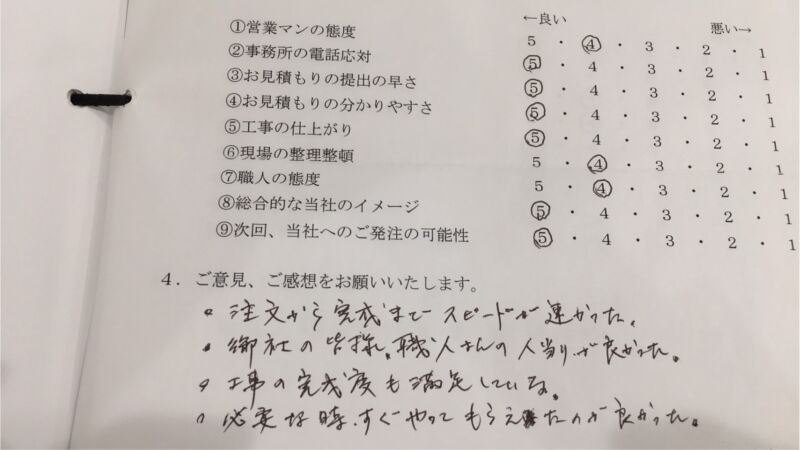 ←良い 悪い→
①営業マンの態度 5 ・ 4 ・ 3 ・ 2 ・ 1
②事務所の電話応対 5 ・ 4 ・ 3 ・ 2 ・ 1
③お見積もりの提出の早さ 5 ・ 4 ・ 3 ・ 2 ・ 1
④お見積もりの分かりやすさ 5 ・ 4 ・ 3 ・ 2 ・ 1
⑤工事の仕上がり 5 ・ 4 ・ 3 ・ 2 ・ 1
⑥現場の整理整頓 5 ・ 4 ・ 3 ・ 2 ・ 1
⑦職人の態度 5 ・ 4 ・ 3 ・ 2 ・ 1
⑧総合的な当社のイメージ 5 ・ 4 ・ 3 ・ 2 ・ 1
⑨次回、当社へのご発注の可能性 5 ・ 4 ・ 3 ・ 2 ・ 1
4．ご意見、ご感想をお願いいたします。
。注文から完成までスピードが速かった。
。御社の皆様、職人さんの人当りが良かった。
。工事の完成度も満足している。
。必要な時、すぐやってもらえたのが良かった。